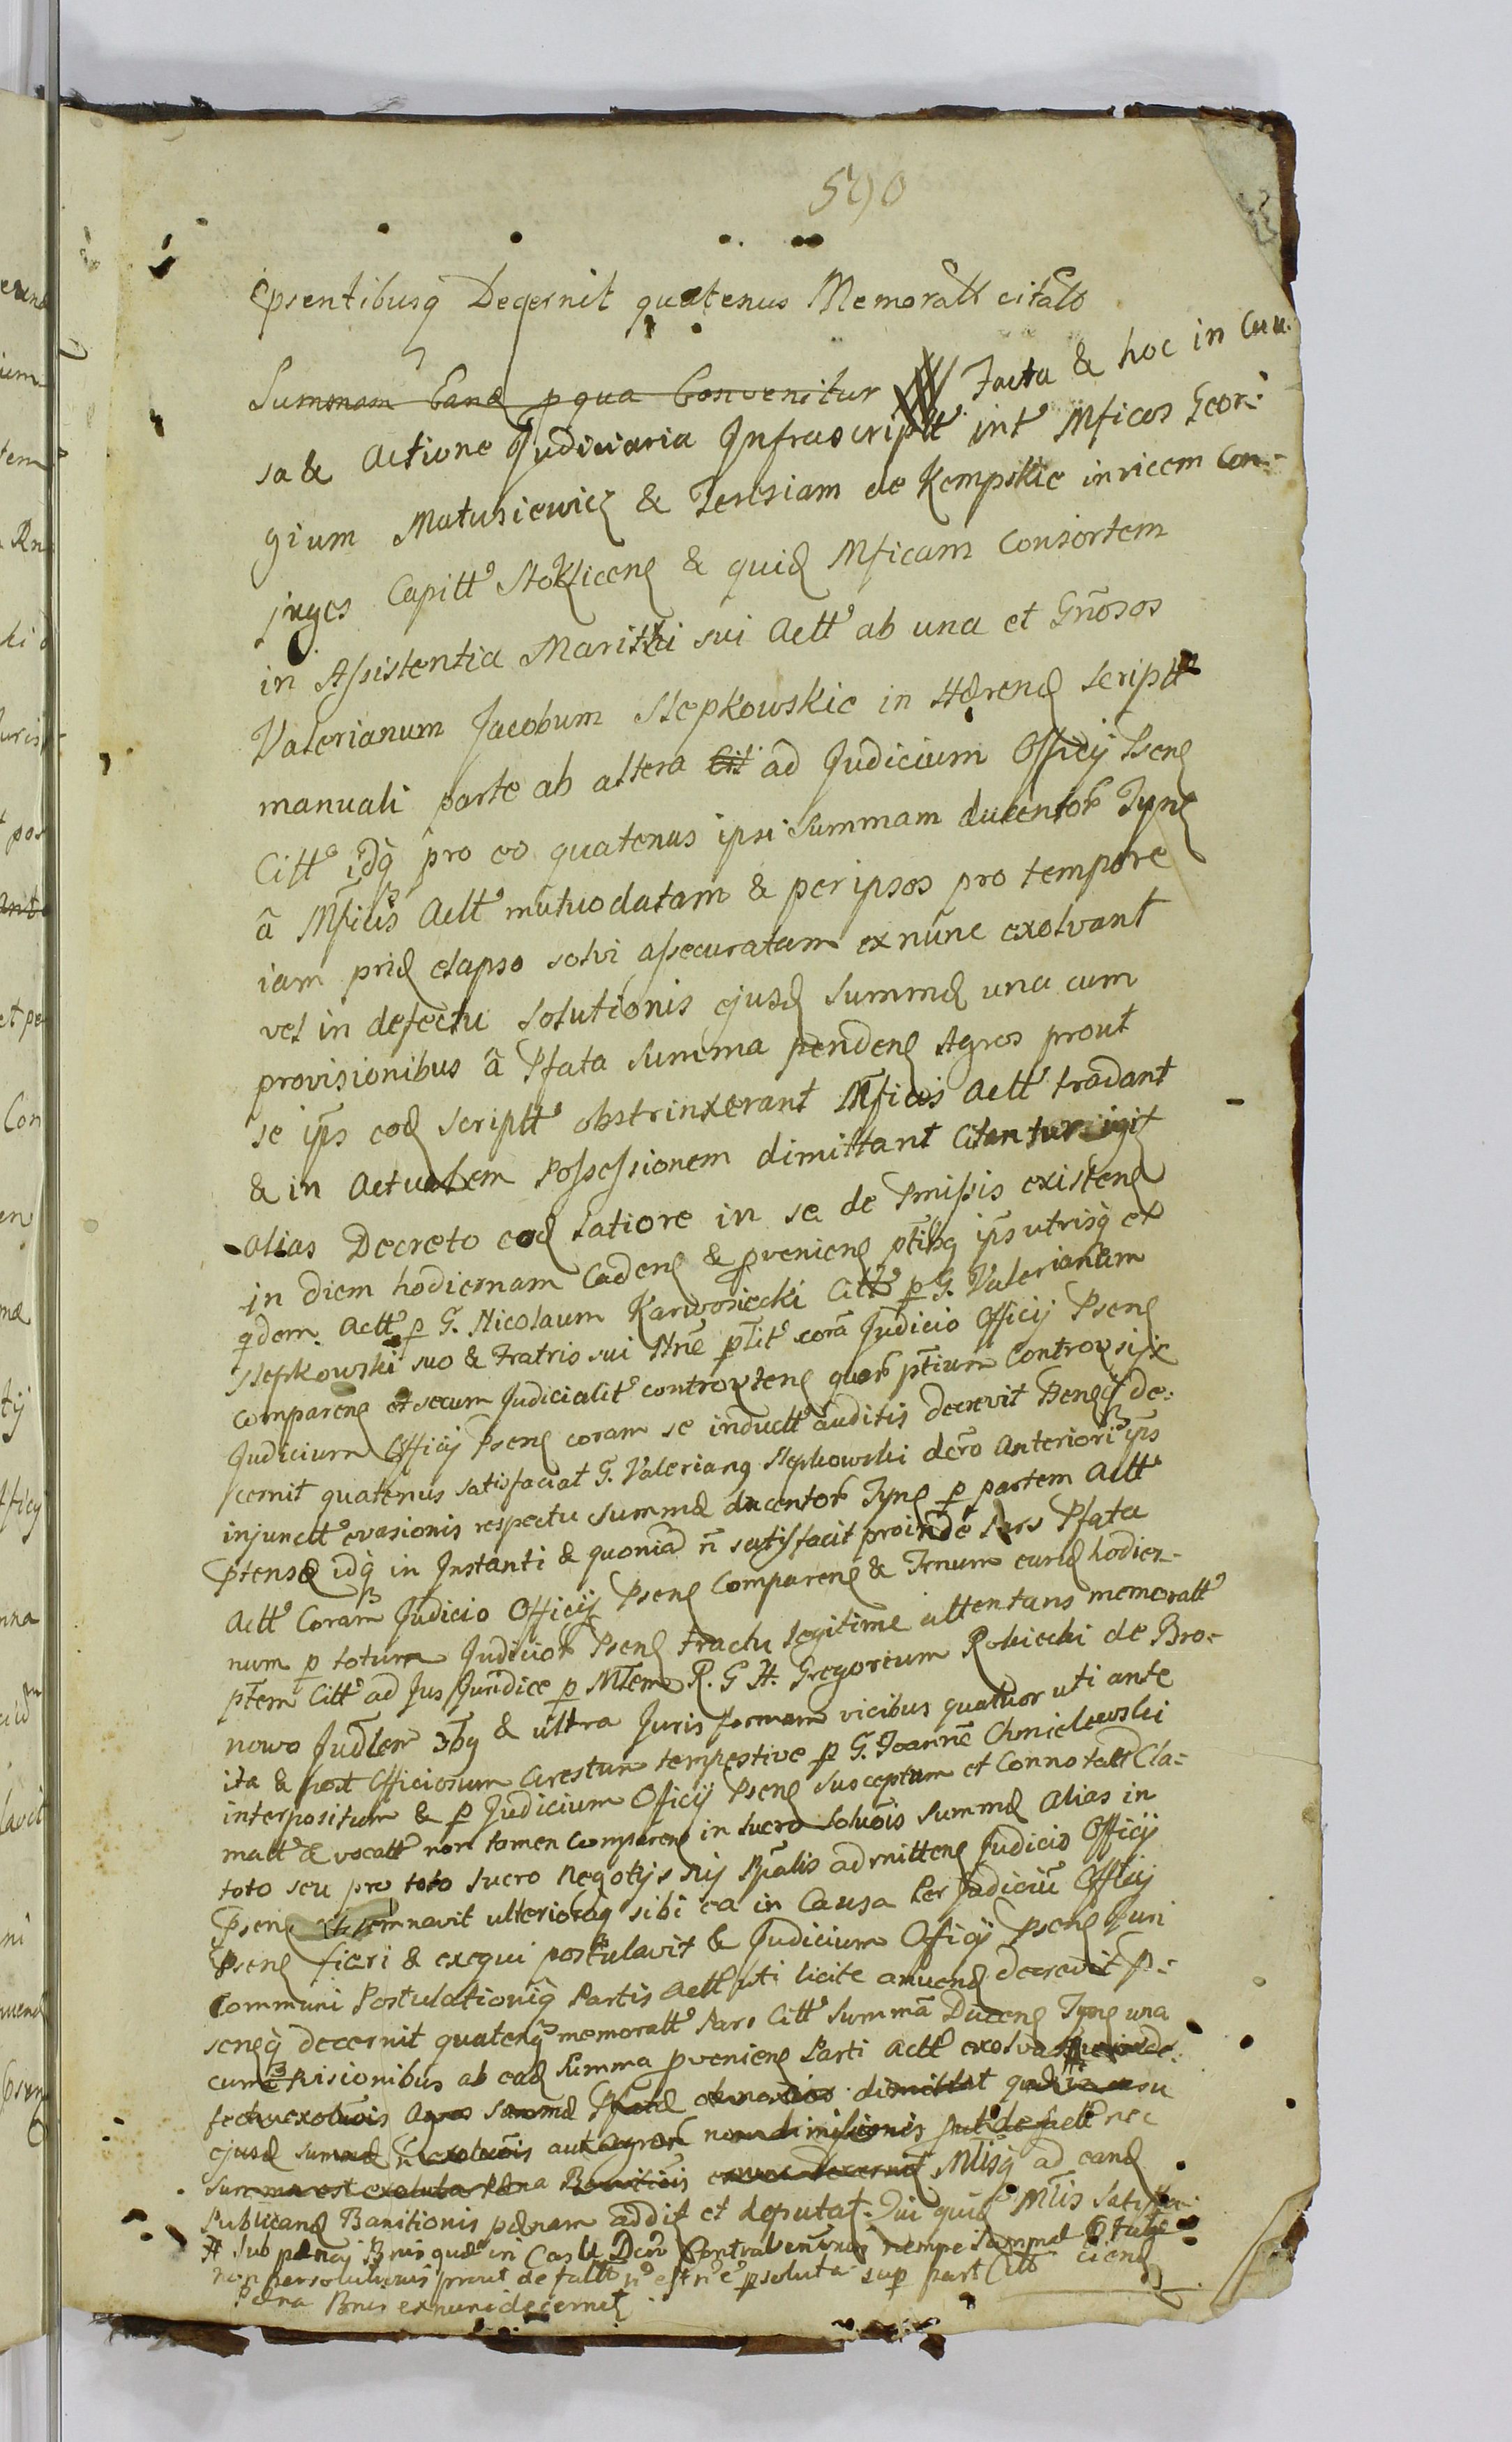 590
Psentibusq Decernit quatenus Memoratt citatt
Summam Eand p qua Convenitur Facta & hoc in Cau-
sa & Actione Judiciaria Infrascriptt int Mficos Geor-
gium Matusiewicz & Teresiam de Kempskie invicem Con-
juges Capitt Stokliceng & quid Mficam Consortem
in Assistentia Maritti sui Actt ab una et Gnosos
Valerianum Jacobum Slepkowskie in Hærend scriptt
manuali parte ab altera Cit ad Judicium Officij Pseng
Citt idq pro eo quatenus ipsi summam ducentor Tyng
â Mficis Actt mutuo datam & per ipsos pro tempore
iam prid elapso solvi assecuratam ex nunc exolvant
vel in defectu solutionis ejusd summæ una cum
provisionibus â Pfata summa pendeng Agros prout
se ips eod scriptt obstrinxerant Mficis Actt tradant
& in Actualem Possessionem dimittant Citantur igit
alias Decreto eod latiore in se de Pmissis existeng
in diem hodiernam Cadeng & pvenieng ptibq ips utrisq et
qdem Actt p G. Nicolaum Karwosiecki Citt p G. Valerianum
Slepkowski suo & Fratris sui Nne ptit corã Judicio Officij Pseng
Compareng et secum Judicialit controvteng quor ptium Controvsijs
Judicium Officij Pseng coram se inductt auditis decrevit Psengq de-
cernit quatenus satisfaciat G. Valerianq Slepkowski decro Anteriori ips
injunctt evasionis respectu summæ ducentor Tyng p partem Actt
Ptensæ idq in Instanti & quoniã ñ satisfacit proinde Pars Pfata
Actt Coram Judicio Officij Pseng Compareng & Trnum eund hodier-
num p totum Judicior Pseng tractu legitime attentans memoratt
ptem Citt ad Jus Juridice p Mlem R. G. H. Gregorium Robiecki de Bro-
nowo Judlem 3bq & ultra Juris formam vicibus quatuor uti ante
ita & post Officiosum Arestum tempestive p G. Joannẽ Chmielewski
interpositum & p Judicium Officij Pseng susceptum et Connotatt Cla-
matt & vocatt non tamen Compareng in lucro solucois summæ alias in
toto seu pro toto lucro negotijs sui Rpalis admitteng Judicio Officij
Pseng Condemnavit ulteriorãq sibi ea in Causa Per Judiciũ Officij
Pseng fieri & exequi postulavit & Judicium Officij Pseng Juri
Communi Postulationiq Partis Actt uti licite anuend decrevit P-
sengq decernit quatenq memoratt Pars Citt Summã Duceng Tyng una
cum Pvisionibus ab ead Summa pvenieng Parti Actt exolvat
fectu exolucois Agros summæ Pfatæ obnoxios dimittat
ejusd summæ ñ exolucois aut agror non dimissionis nec
Summa est exoluta Pæna Banicois ex nunc decernit Mlisq ad eand
Publicand Banitionis pænam addit et deputat. Qui quid Mlis satisfa-
ciend
# sub pænaj Bnis quæ in Casu Decri Contraventionis nempe Summæ Pfatæ
non persolucionis prout de factt ñ est psoluta sup part Citt
Pæna Bnis ex nunc decernit